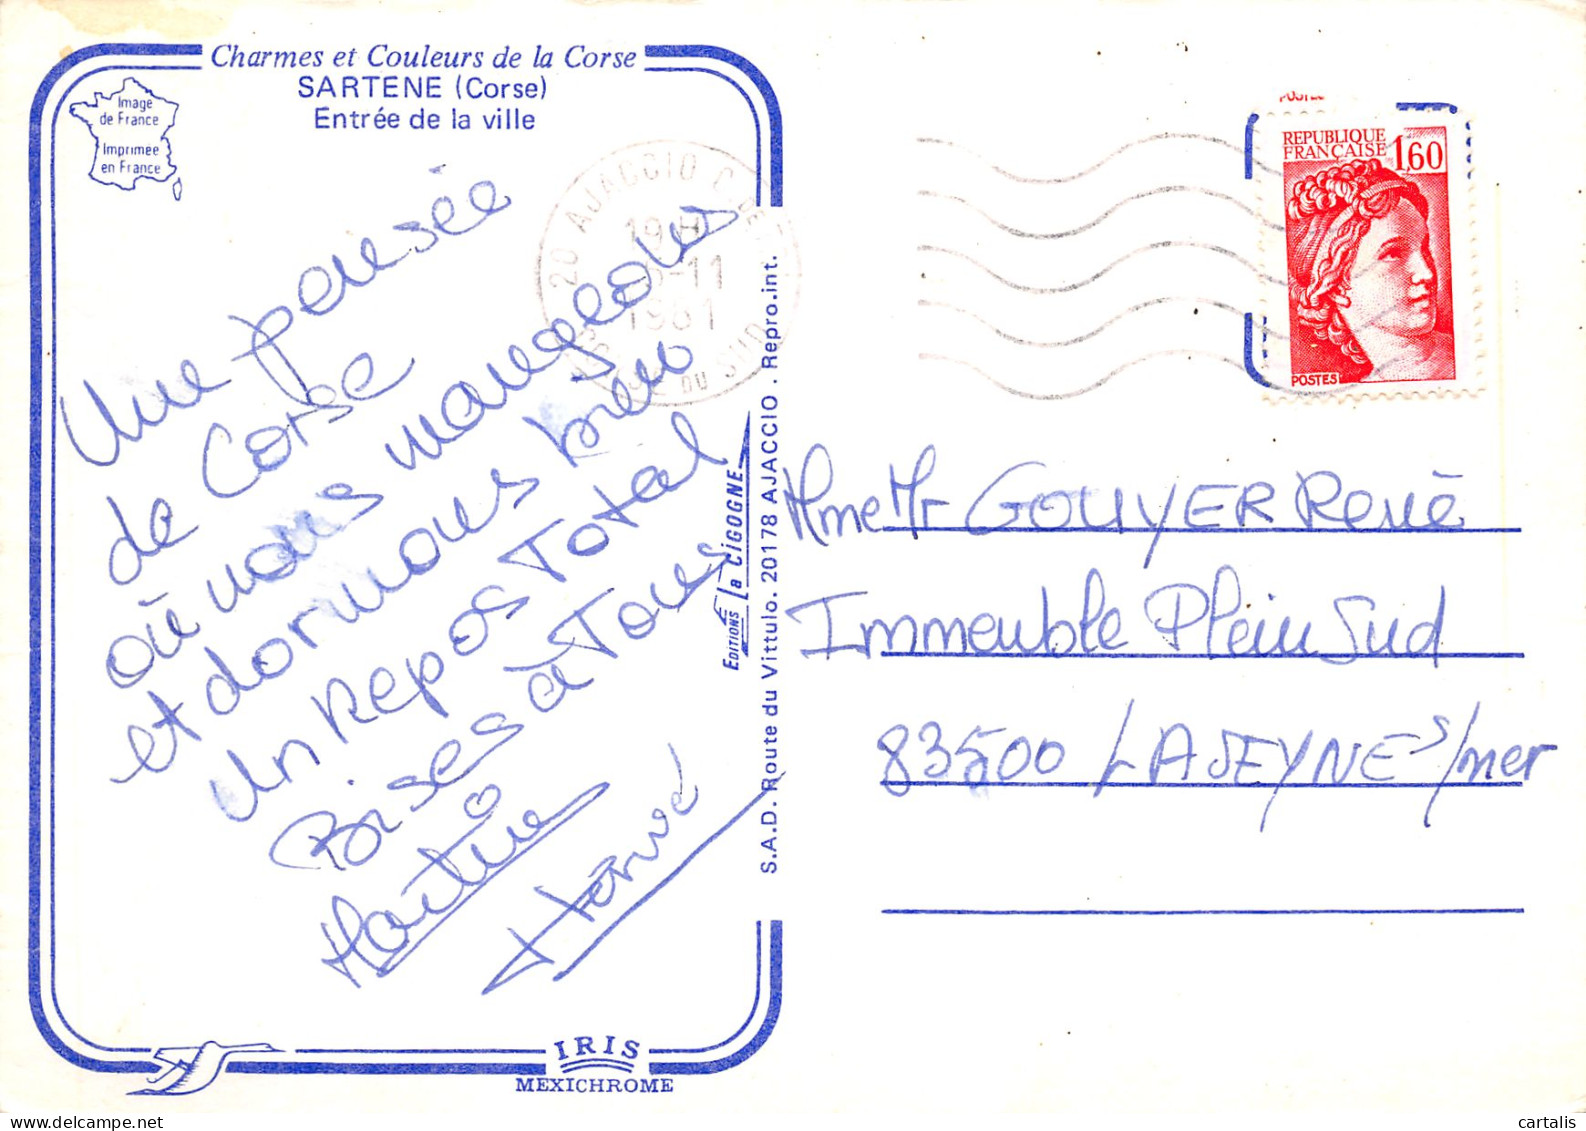 Charmes et Couleurs de la Corse
SARTENE (Corse)
Entrée de la ville
Image
de France
Imprimée
en France
Une pensée
de Corse
où nous mangeons
et dormons bien
Un Repos Total
Bises à Tous
Martine
Hervé
IRIS
MEXICHROME
EDITIONS La CIGOGNE
S.A.D. Route du Vittulo. 20178 AJACCIO . Repro.int.
20 AJACCIO
19H
-11
1981
DU SUD
REPUBLIQUE
FRANÇAISE
1,60
POSTES
Mme Mr GOUYER René
Immeuble Plein Sud
83500 LA SEYNE s/mer
cartalis